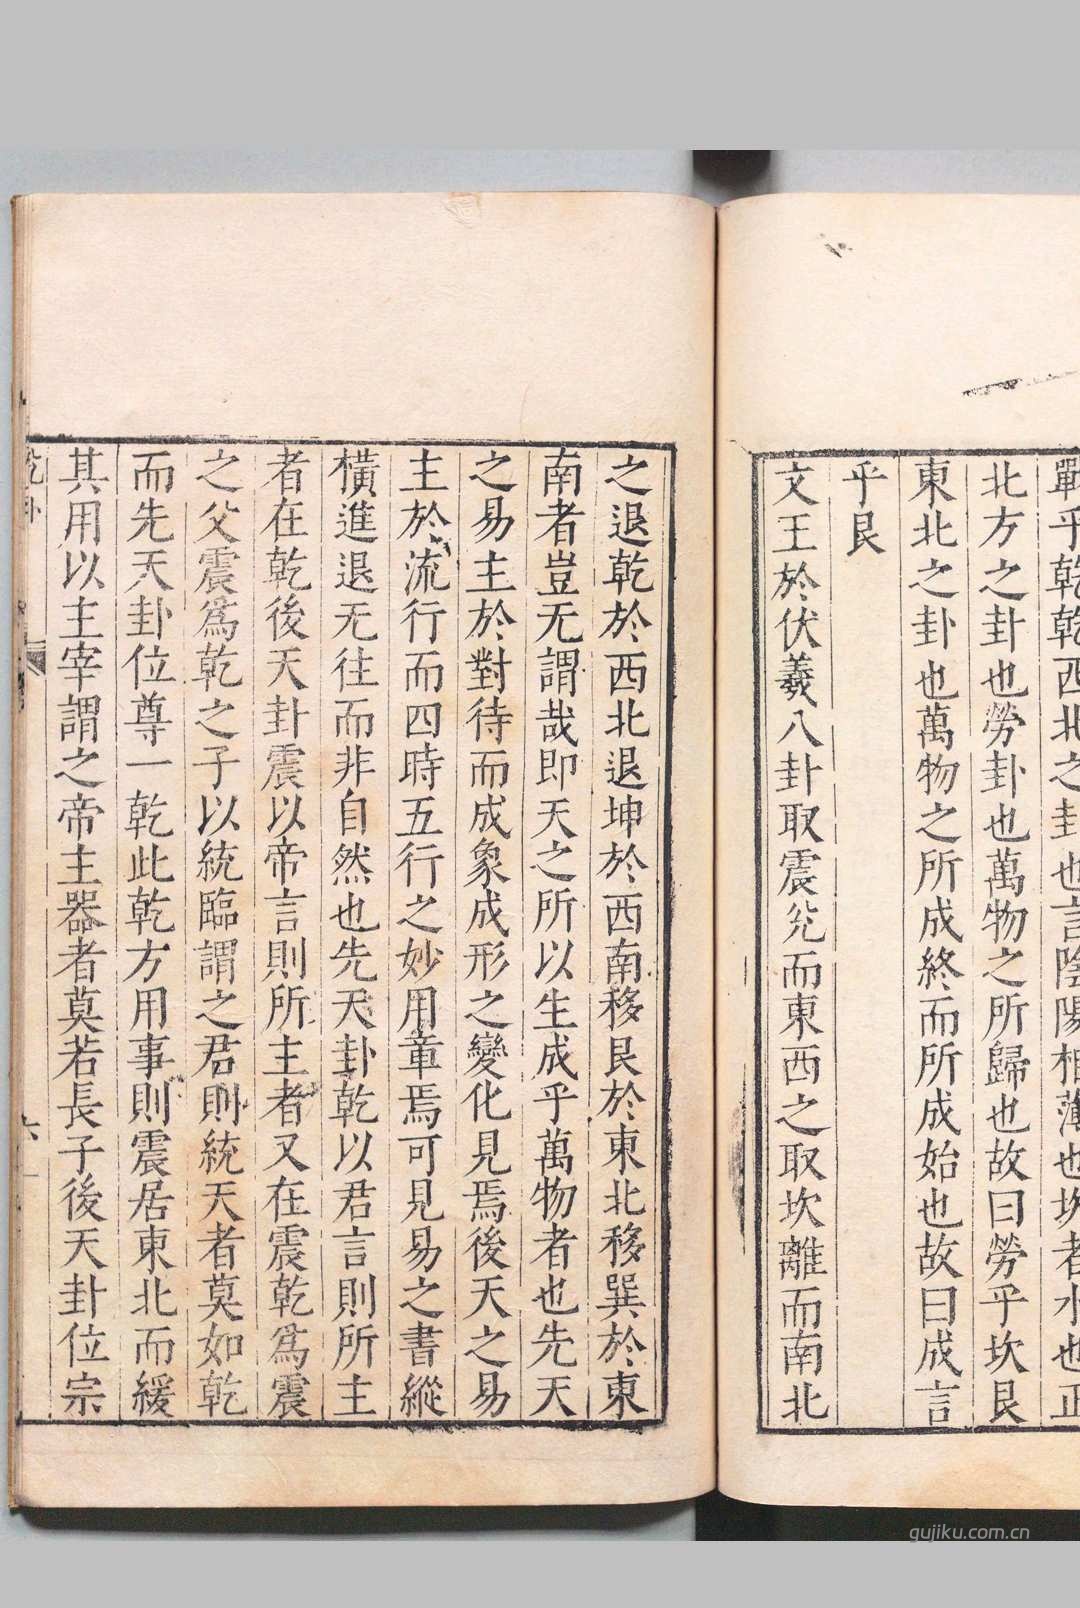 戰乎乾乾西北之卦也言陰陽相薄也坎者水也正
北方之卦也勞卦也萬物之所歸也故曰勞乎坎艮
東北之卦也萬物之所成終而所成始也故曰成言
乎艮
文王於伏羲八卦取震兊而東西之取坎離而南北
之退乾於西北退坤於西南移艮於東北移巽於東
南者豈无謂哉即天之所以生成乎萬物者也先天
之易主於對待而成象成形之變化見焉後天之易
主於流行而四時五行之妙用章焉可見易之書縱
橫進退无往而非自然也先天卦乾以君言則所主
者在乾後天卦震以帝言則所主者又在震乾為震
之父震為乾之子以統臨謂之君則統天者莫如乾
而先天卦位尊一乾此乾方用事則震居東北而緩
其用以主宰謂之帝主器者莫若長子後天卦位宗
乾卦
六
gujiku.com.cn